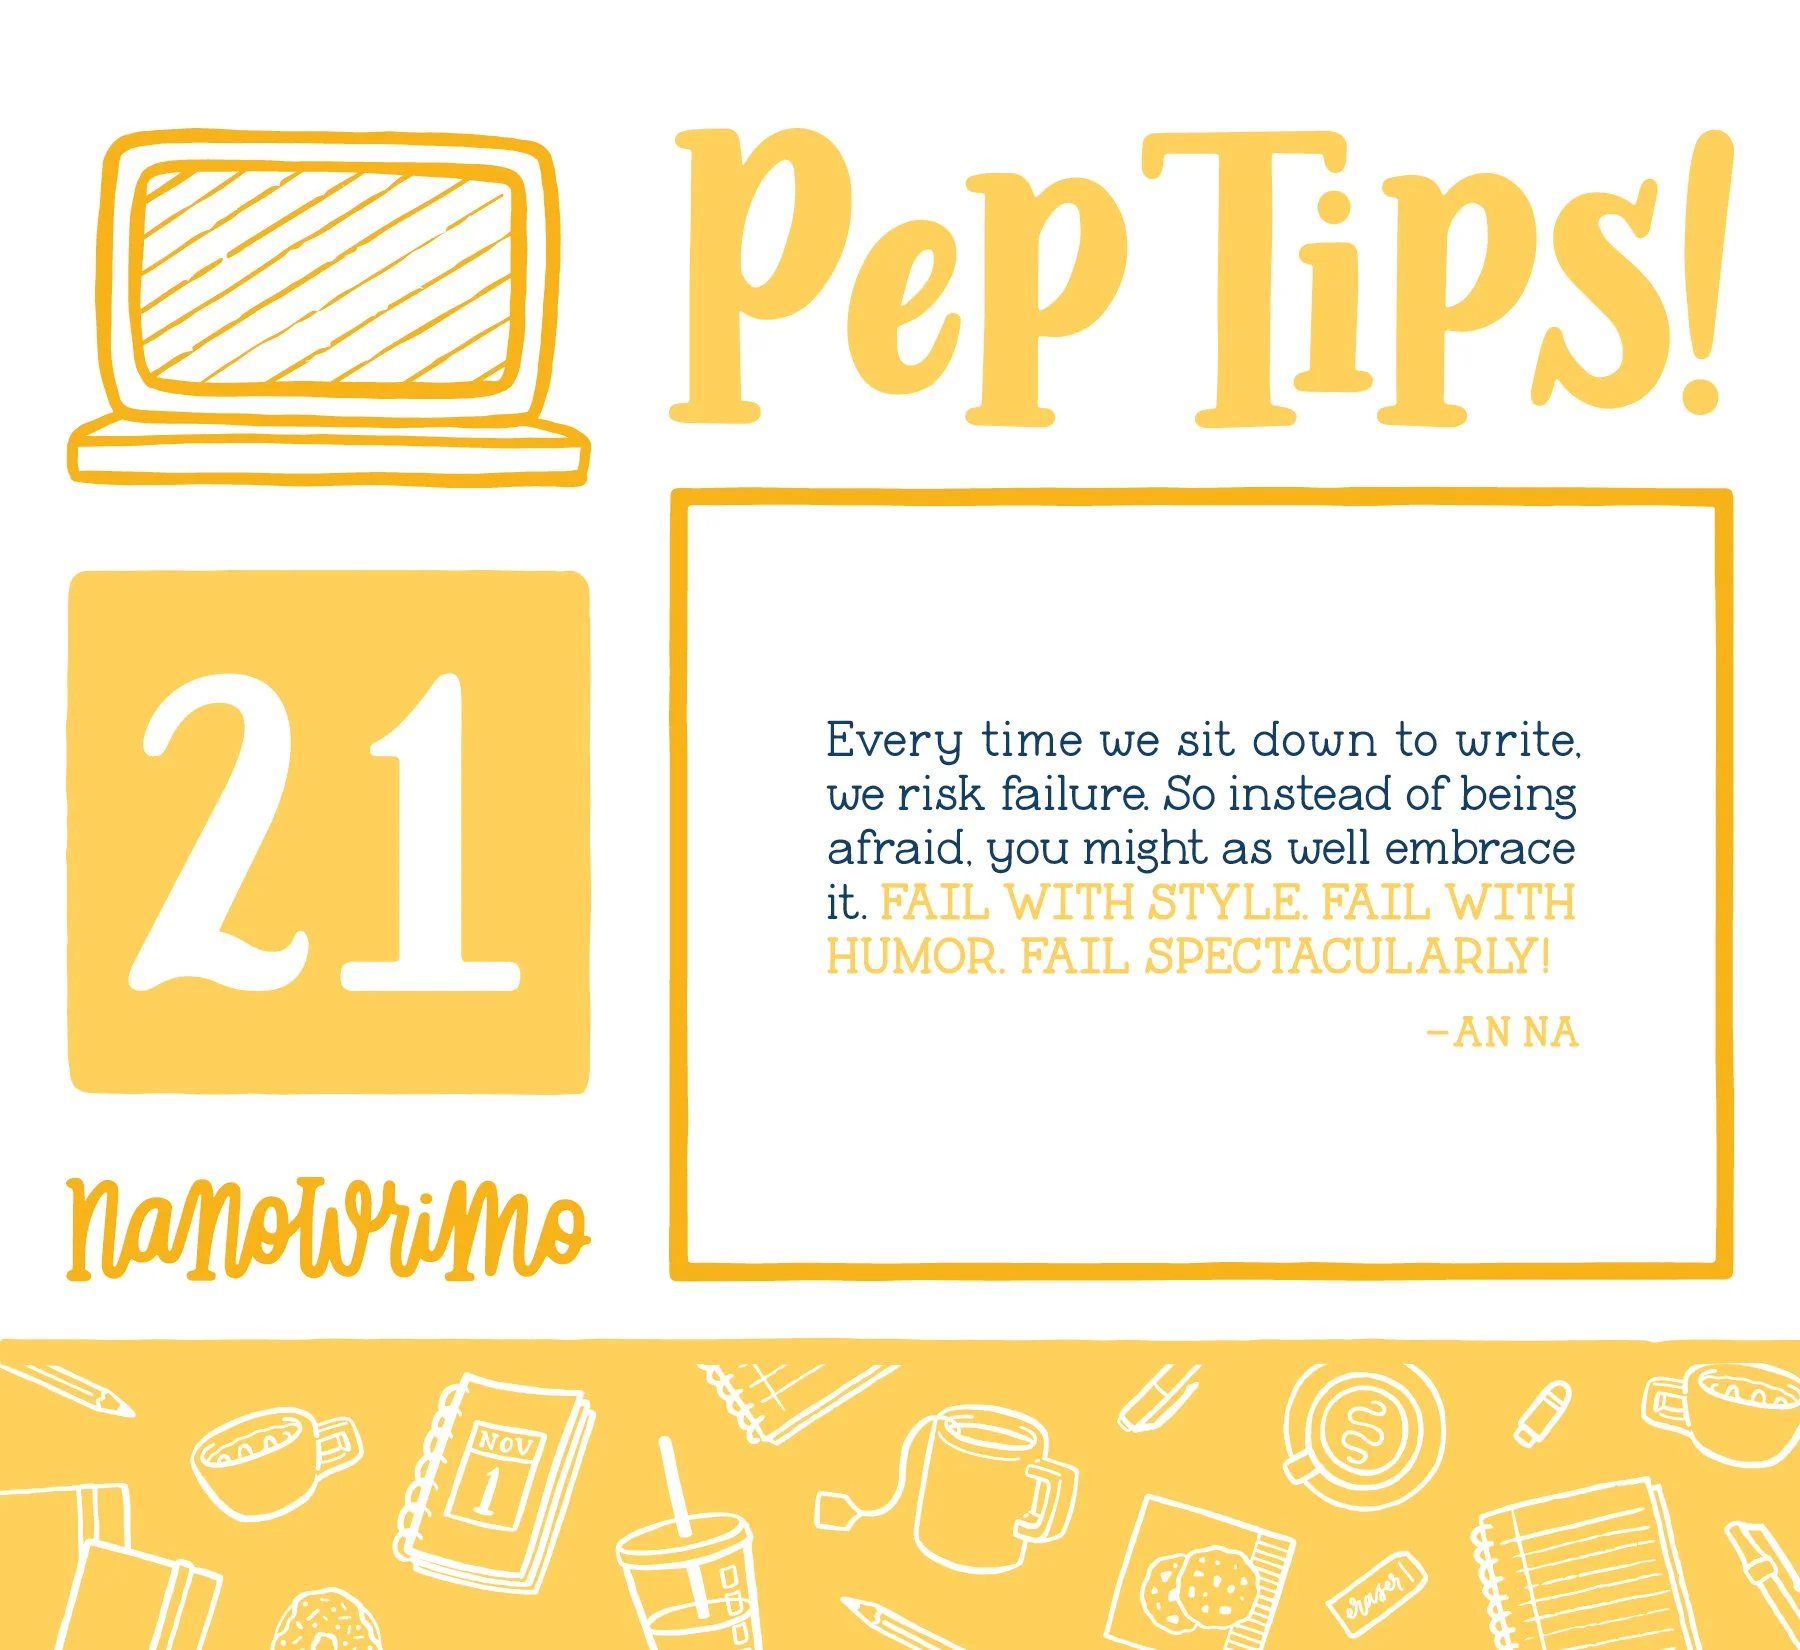 Pep Tips!
21
NaNoWriMo
Every time we sit down to write,
we risk failure. So instead of being
afraid, you might as well embrace
it. FAIL WITH STYLE. FAIL WITH
HUMOR. FAIL SPECTACULARLY!
–AN NA
NOV
1
eraser